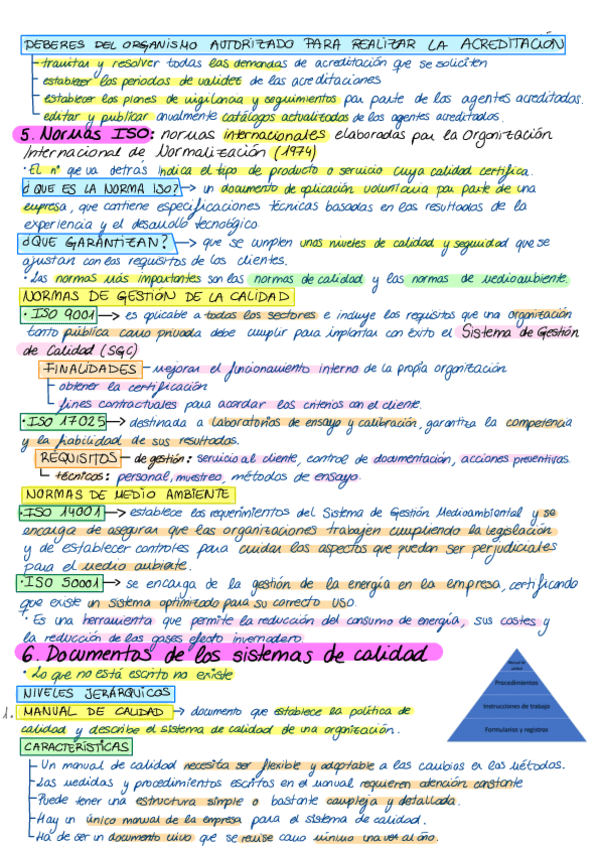 DEBERES DEL ORGANISMO AUTORIZADO PARA REALIZAR LA ACREDITACIÓN
tramitar y resolver todas las demandas de acreditación que se soliciten
establecer los periodos de validez de las acreditaciones
establecer los planes de vigilancia y seguimientos por parte de los agentes acreditados.
editar y publicar anualmente catálogos actualizados de los agentes acreditados.
5. Normas ISO: normas internacionales elaboradas por la Organización
Internacional de Normalización (1974)
· El nº que va detrás indica el tipo de producto o servicio cuya calidad certifica.
¿QUE ES LA NORMA ISO? → un documento de aplicación voluntaria por parte de una
empresa, que contiene especificaciones técnicas basadas en los resultados de la
experiencia y el desarrollo tecnológico
¿QUE GARANTIZAN? → que se cumplen unos niveles de calidad y seguridad que se
ajustan con los requisitos de los clientes.
· Las normas más importantes son las normas de calidad y las normas de medioambiente.
NORMAS DE GESTIÓN DE LA CALIDAD
· ISO 9001 → es aplicable a todos los sectores e incluye los requisitos que una organización
tanto pública como privada debe cumplir para implantar con éxito el Sistema de Gestión
de Calidad (SGC)
FINALIDADES - mejorar el funcionamiento interno de la propia organización
obtener la certificación
fines contractuales para acordar los criterios con el cliente.
· ISO 17025 → destinada a laboratorios de ensayo y calibración, garantiza la competencia
y la fiabilidad de sus resultados.
REQUISITOS - de gestión: servicio al cliente, control de documentación, acciones preventivas.
técnicos: personal, muestreo, métodos de ensayo.
NORMAS DE MEDIO AMBIENTE
· ISO 14001 → establece los requerimientos del Sistema de Gestión Medioambiental y se
encarga de asegurar que las organizaciones trabajen cumpliendo la legislación
y de establecer controles para cuidar los aspectos que puedan ser perjudiciales
para el medio ambiente.
· ISO 50001 → se encarga de la gestión de la energía en la empresa, certificando
que existe un sistema optimizado para su correcto uso.
· Es una herramienta que permite la reducción del consumo de energía, sus costes y
la reducción de los gases efecto invernadero.
6. Documentos de los sistemas de calidad
· Lo que no está escrito no existe
NIVELES JERÁRQUICOS
1. MANUAL DE CALIDAD → documento que establece la política de
calidad y describe el sistema de calidad de una organización.
CARACTERÍSTICAS
Un manual de calidad necesita ser flexible y adaptable a los cambios en los métodos.
Las medidas y procedimientos escritos en el manual requieren atención constante
Puede tener una estructura simple o bastante compleja y detallada.
Hay un único manual de la empresa para el sistema de calidad.
Ha de ser un documento vivo que se revise como mínimo una vez al año.
Manual de
calidad
Procedimientos
Instrucciones de trabajo
Formularios y registros